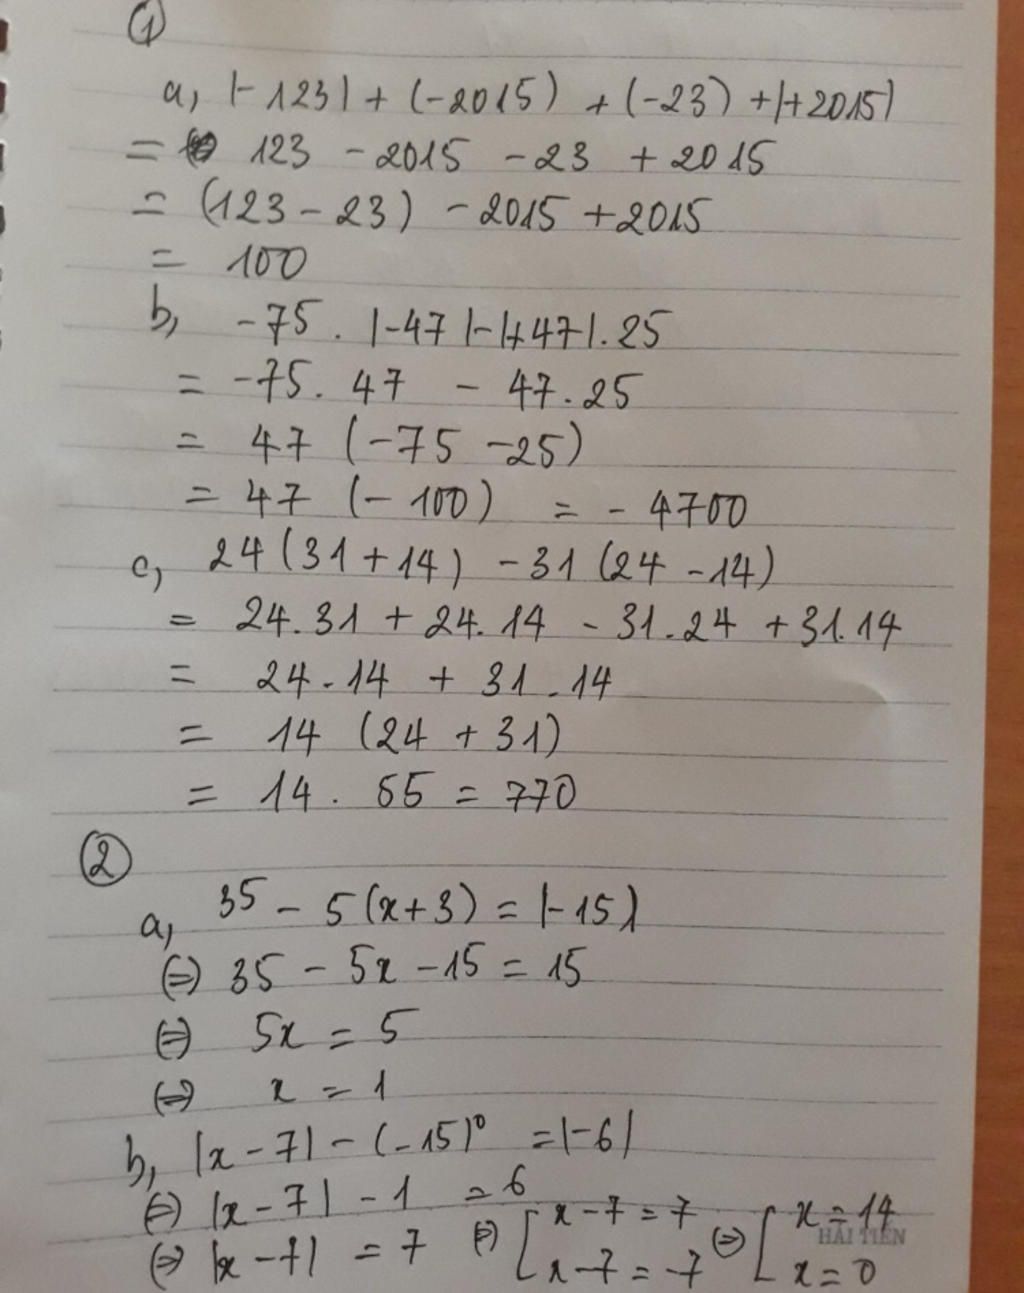 ①
a, |-123| + (-2015) + (-23) + |+2015|
= 123 - 2015 - 23 + 2015
= (123 - 23) - 2015 + 2015
= 100
b, -75 . |-47| - |+47| . 25
= -75 . 47 - 47 . 25
= 47 (-75 - 25)
= 47 (-100) = - 4700
c, 24 (31 + 14) - 31 (24 - 14)
= 24.31 + 24.14 - 31.24 + 31.14
= 24.14 + 31.14
= 14 (24 + 31)
= 14 . 55 = 770
②
a, 35 - 5(x+3) = |-15|
⇔ 35 - 5x - 15 = 15
⇔ 5x = 5
⇔ x = 1
b, |x - 7| - (-15)⁰ = |-6|
⇔ |x - 7| - 1 = 6
⇔ |x - 7| = 7 ⇔ [ x - 7 = 7 ⇔ [ x = 14
x - 7 = -7 x = 0
HẢI TIẾN